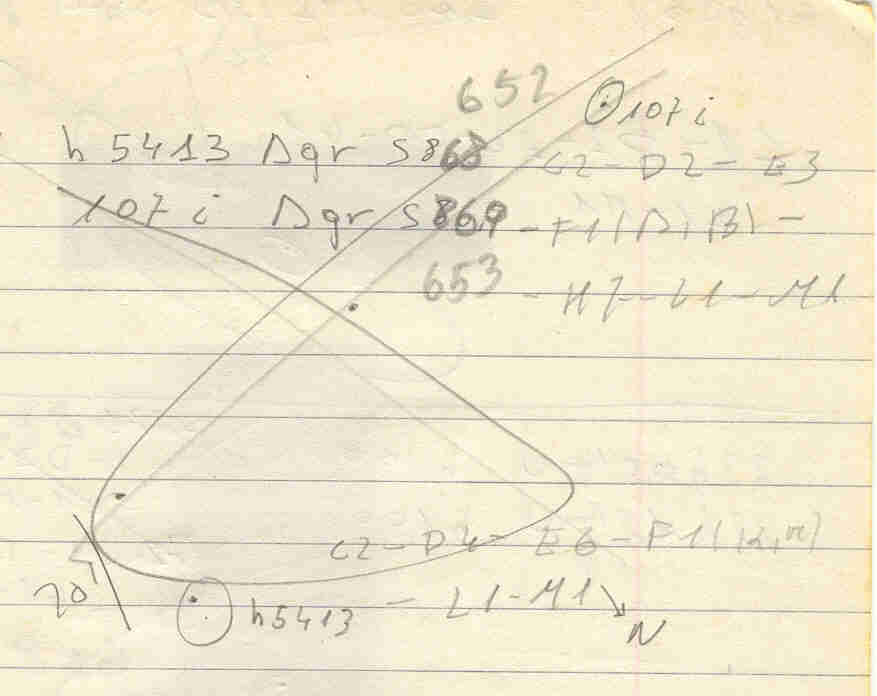 652
107 i
h 5413 Dgr S868 - C2 - D2 - E3
107 i Dgr S869 - F1(D,B) -
653 - H7 - L1 - M1
C2 - D4 - E6 - F1(K,n)
20
h5413 - L1 - M1
N